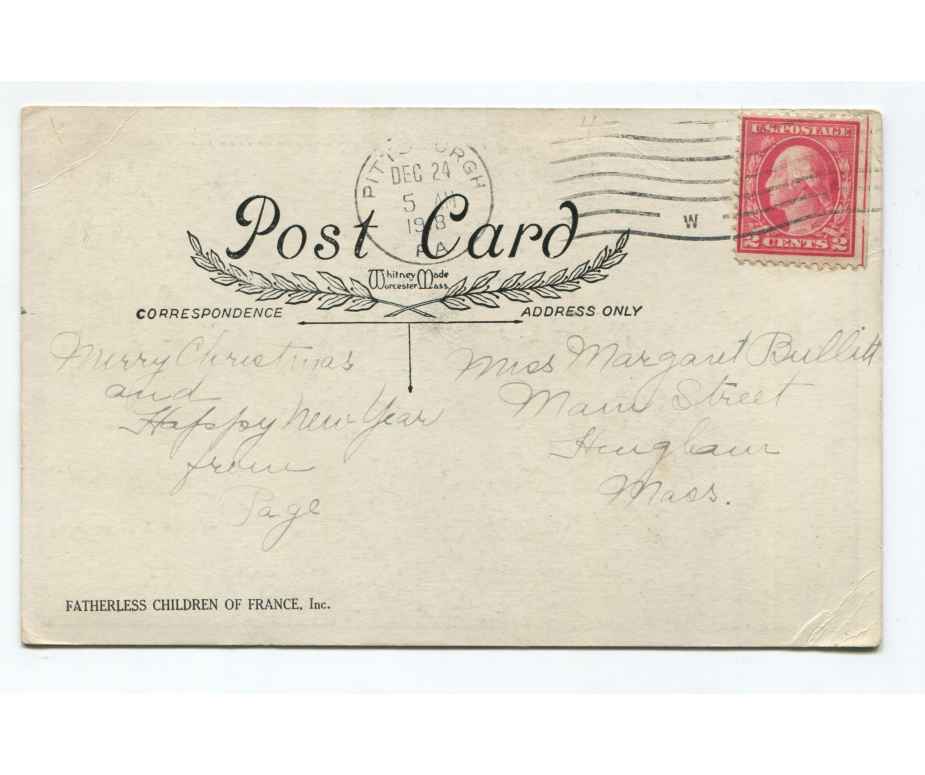 PITTSBURGH
DEC 24
5 AM
1918
PA
W
U.S. POSTAGE
2 CENTS 2
Post Card
Whitney Made
Worcester Mass.
CORRESPONDENCE
ADDRESS ONLY
Merry Christmas
and
Happy New Year
from
Page
Miss Margaret Bullitt
Main Street
Hingham
Mass.
FATHERLESS CHILDREN OF FRANCE, Inc.